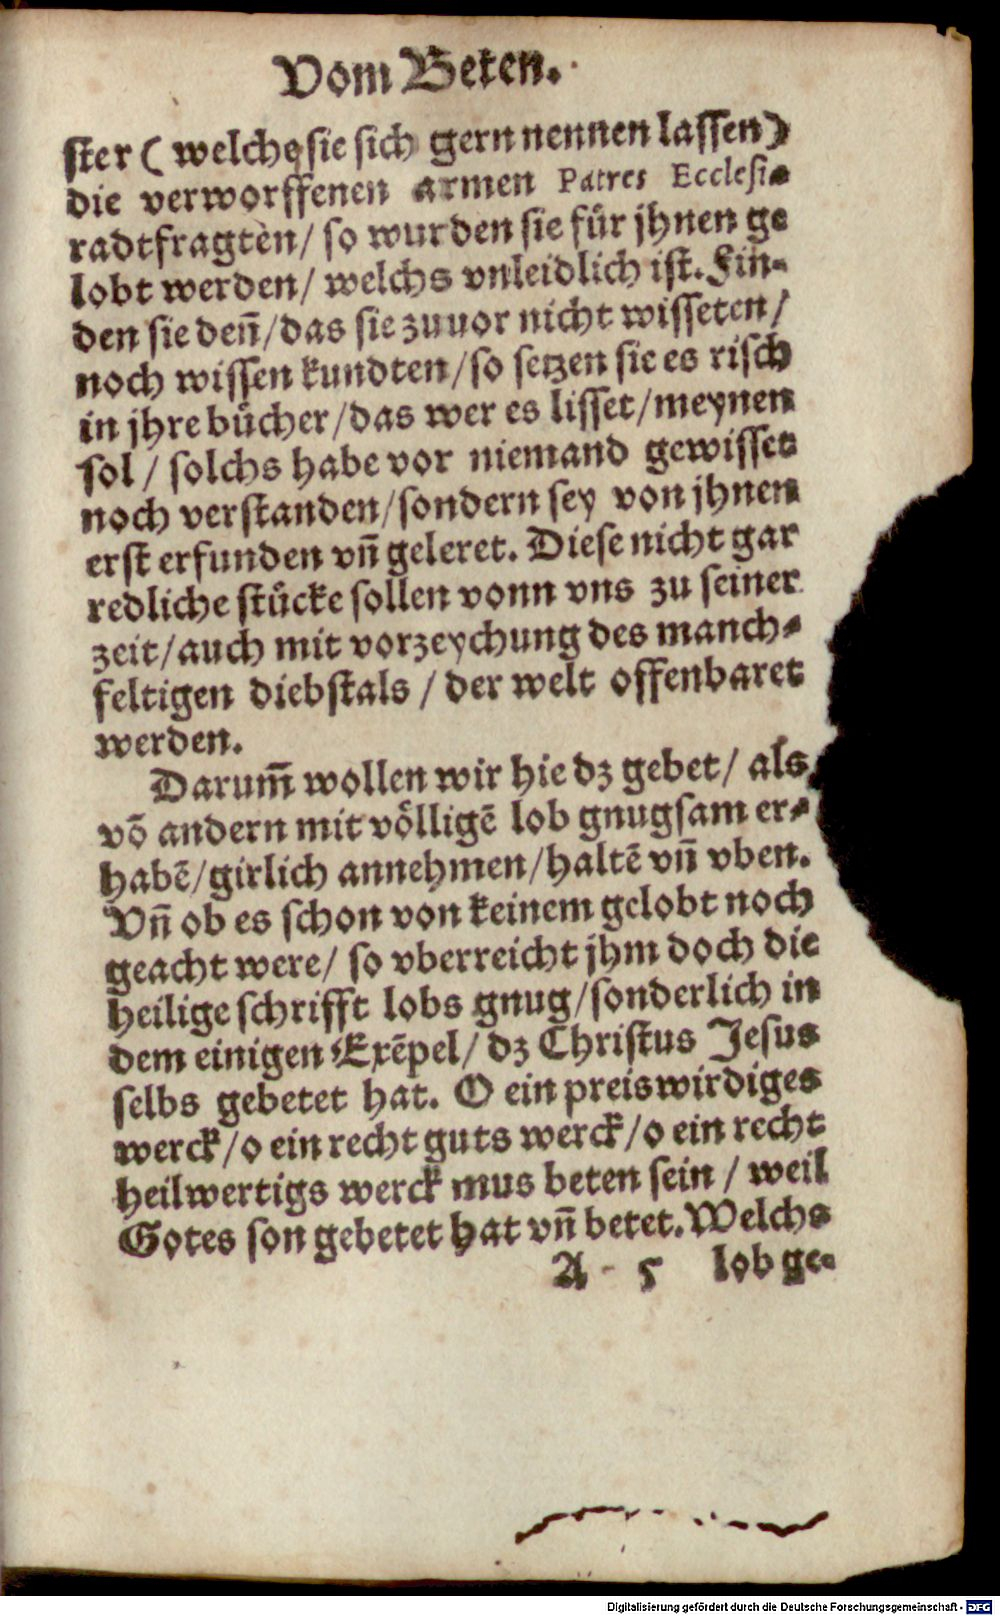 Vom Beten.
ster (welche sie sich gern nennen lassen)
die verworffenen armen Patres Ecclesiæ
radtfragten/ so wurden sie für jhnen ge
lobt werden/ welchs vnleidlich ist. Fin-
den sie deñ/das sie zuuor nicht wisseten/
noch wissen kundten/so setzen sie es risch
in jhre bücher/das wer es lisset/meynen
sol / solchs habe vor niemand gewisset
noch verstanden/sondern sey von jhnen
erst erfunden vñ geleret. Diese nicht gar
redliche stücke sollen vonn vns zu seiner
zeit/auch mit vorzeychung des manch-
feltigen diebstals / der welt offenbaret
werden.
Darum̃ wollen wir hie dz gebet/ als
võ andern mit völligẽ lob gnugsam er-
habẽ/girlich annehmen/haltẽ vñ vben.
Vñ ob es schon von keinem gelobt noch
geacht were/ so vberreicht jhm doch die
heilige schrifft lobs gnug/sonderlich in
dem einigen Exẽpel/ dz Christus Jesus
selbs gebetet hat. O ein preiswirdiges
werck/o ein recht guts werck/o ein recht
heilwertigs werck mus beten sein / weil
Gotes son gebetet hat vñ betet. Welchs
A 5 lob ge-
Digitalisierung gefördert durch die Deutsche Forschungsgemeinschaft - DFG